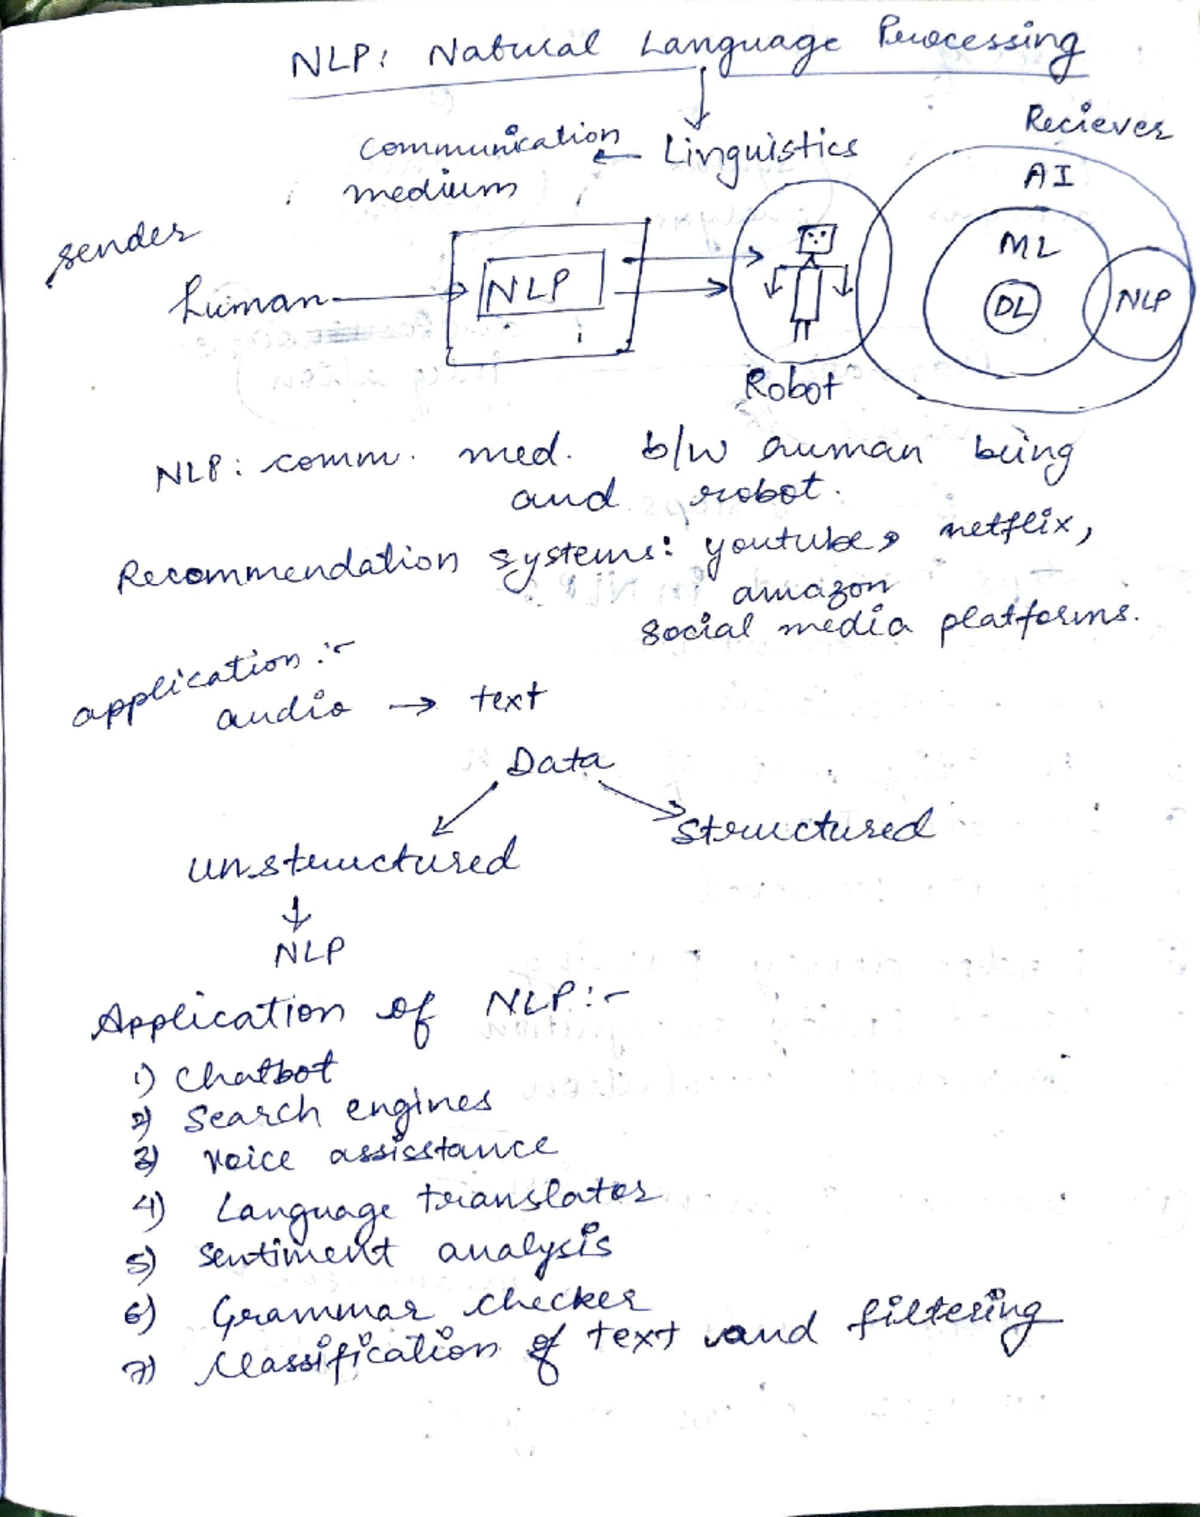 NLP: Natural Language Processing
Reciever
communication Linguistics
medium
AI
sender
ML
human NLP
DL NLP
Robot
NLP: comm. med. b/w human being
and robot.
Recommendation systems: youtube, netflix,
amazon
social media platforms.
application :-
audio → text
Data
unstructured structured
NLP
Application of NLP:-
1) Chatbot
2) Search engines
3) Voice assisstance
4) Language translator
5) Sentiment analysis
6) Grammar checker
7) Classification of text and filtering